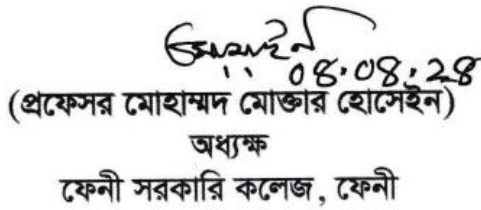 ০৪.০৪.২৪
(প্রফেসর মোহাম্মদ মোক্তার হোসেইন)
অধ্যক্ষ
ফেনী সরকারি কলেজ, ফেনী